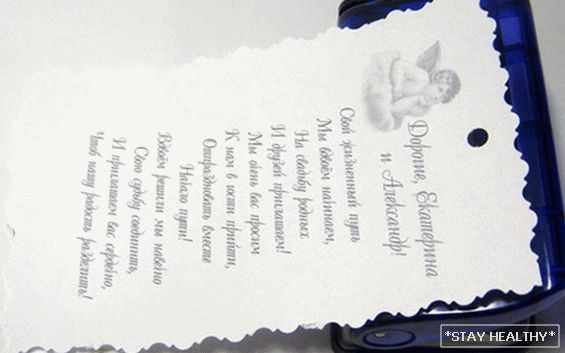 Дорогие, Екатерина
и Александр!
Свой жизненный путь
Мы вдвоём начинаем,
На свадьбу родных
И друзей приглашаем!
Мы очень вас просим
К нам в гости прийти,
Отпраздновать вместе
Начало пути!
Вдвоём решили мы навечно
Свою судьбу соединить,
И приглашаем вас сердечно,
Чтоб нашу радость разделить!
*STAY HEALTHY*